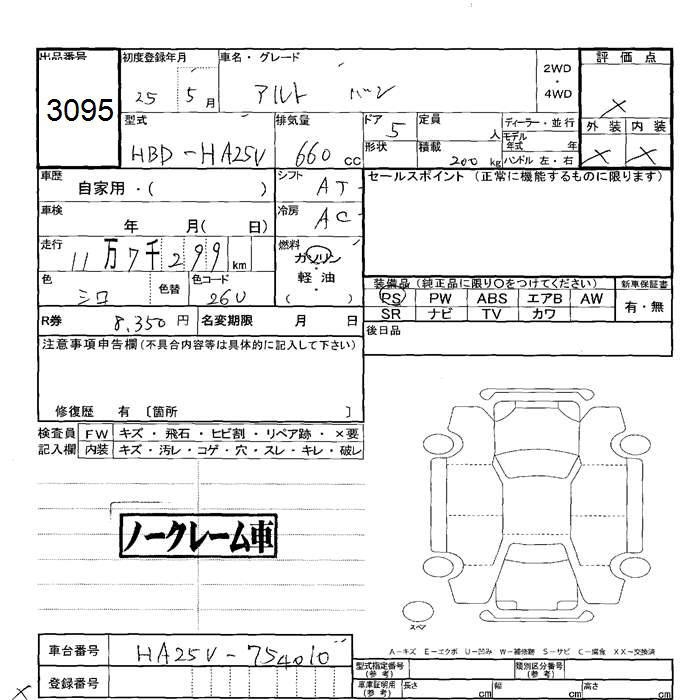 出品番号 初度登録年月 車名・グレード 評価点
3095 25 5月 アルト バン 2WD・4WD ×
型式 排気量 ドア 定員 ディーラー・並行 外装 内装
HBD-HA25V 660cc 5 人 モデル年式 年 × ×
形状 積載 200kg ハンドル 左・右
車歴 自家用・( ) シフト AT セールスポイント (正常に機能するものに限ります)
車検 年 月( 日) 冷房 AC
走行 11万7千299km 燃料 ガソリン・軽油 ( )
色 シロ 色替 色コード 26U 装備品 (純正品に限り○をつけてください) 新車保証書
PS PW ABS エアB AW 有・無
SR ナビ TV カワ
R券 8,350円 名変期限 月 日 後日品
注意事項申告欄(不具合内容等は具体的に記入して下さい)
修復歴 有 〔箇所 〕
検査員 FW キズ・飛石・ヒビ割・リペア跡・×要
記入欄 内装 キズ・汚レ・コゲ・穴・スレ・キレ・破レ
ノークレーム車
スペア
A-キズ E-エクボ U-凹み W-補修跡 S-サビ C-腐食 XX-交換済
車台番号 HA25V-754010 型式指定番号(参考) 類別区分番号(参考)
× 登録番号 車庫証明用(参考) 長さ cm 幅 cm 高さ cm